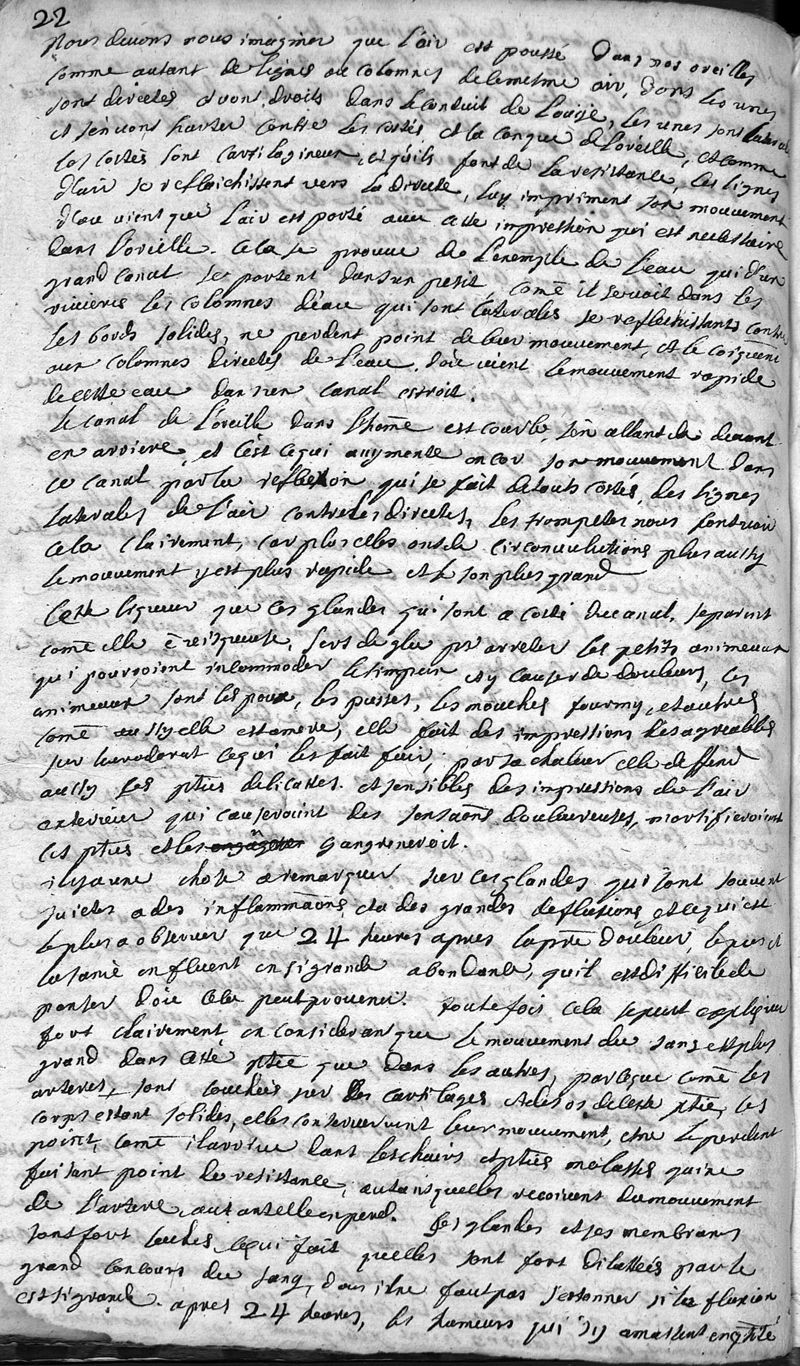 22
Nous devons nous imaginer que l'air est poussé dans nos oreilles
comme autant de lignes ou colomnes de le mesme air, dont les unes
sont directes et vont droits dans le conduit de l'ouije, les unes sont laterales
et s'en vont heurter contre les costés et la conque de l'oreille, et comme
les costés sont cartilagineux, et qu'ils font de la resistance, les lignes
d'air se reflaichissent vers la directe, luy impriment son mouvement
d'ou vient que l'air est porté avec cete impression qui est necessaire
dans l'oreille. Cela se prouve de l'exemple de l'eau qui d'un
grand canal se portent dans un petit, come il se voit dans les
rivieres les colomnes d'eau qui sont laterales se reflechissants contre
les bords solides, ne perdent point de leur mouvement, et le
aux colomnes directes de l'eau, d'ou vient le mouvement rapide
de cette eau dans un canal estroit.
Le canal de l'oreille dans l'home est courbe, s'en allant de devant
en arriere, et c'est ce qui augmente encor son mouvement dans
ce canal par la reflexion qui se fait de touts costés, des lignes
laterales de l'air contre les directes, les trompetes nous font voir
cela clairement, car plus elles ont de circonvolutions plus aussy
le mouvement y est plus rapide et le son plus grand
Cette liqueur que ces glandes qui sont a costé du canal, separent
come elle est visqueuse, sert de glu pr arreter les petits animeaux
qui pourroient incommoder le timpan et y causer de douleurs, ces
animeaux sont les poux, les pusses, les mouches fourmy, et autres
come aussy elle est amere, elle fait des impressions desagreables
sur leur odorat ce qui les fait fuir, par sa chaleur elle deffend
aussy les pties delicattes et sensibles des impressions de l'air
exterieur qui causeroint des sensaons douloureuses, mortifieroint
ces pties et les gangreneroit.
il y a une chose a remarquer sur ces glandes qui sont souvent
sujetes a des inflammaons, et a des grandes defluxions, et ce qui est
le plus a observer que 24 heures apres la pre douleur, le pus et
la sanie en fluent en si grande abondance, qu'il est difficile de
penser d'ou cela peut provenir. toutefois cela se peut expliquer
fort clairement, en considerant que le mouvement du sang est plus
grand dans cette ptie que dans les autres, parceque come les
arteres, sont couchées sur des cartilages et des os de cette ptie, ces
corps estant solides, elles conservent leur mouvement, et ne le perdent
point, come il arrive dans les chairs et pties molasses qui ne
faisant point de resistance, autant qu'elles recoivent du mouvement
de l'artere, autant elle en perd. Les glandes et ses membranes
sont fort laches, ce qui fait qu'elles sont fort dilattées par le
grand concours du sang, donc il ne faut pas s'estonner si la fluxion
est si grande. apres 24 heures, les humeurs qui s'y amassent en qtité